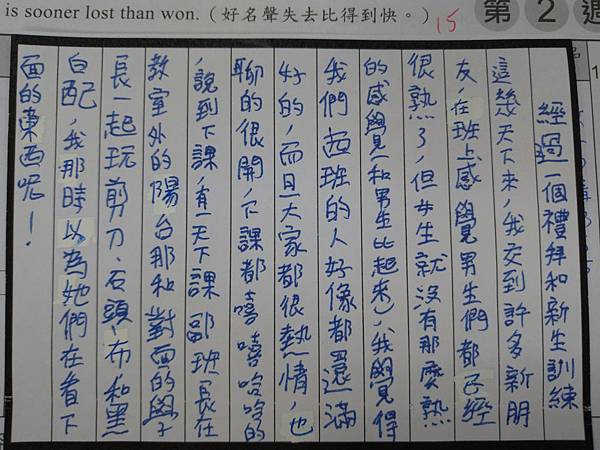 is sooner lost than won.（好名聲失去比得到快。）
15
第2週
經過一個禮拜和新生訓練
這幾天下來，我交到許多新朋
友，在班上感覺男生們都已經
很熟了，但女生就沒有那麼熟
的感覺（和男生比起來），我覺得
我們這班的人好像都還滿
好的，而且大家都很熱情也
聊的很開，下課都嘻嘻哈哈的
，說到下課，有一天下課副班長在
教室外的陽台那和對面的學
長一起玩剪刀、石頭、布和黑
白配，我那時以為她們在看下
面的東西呢！